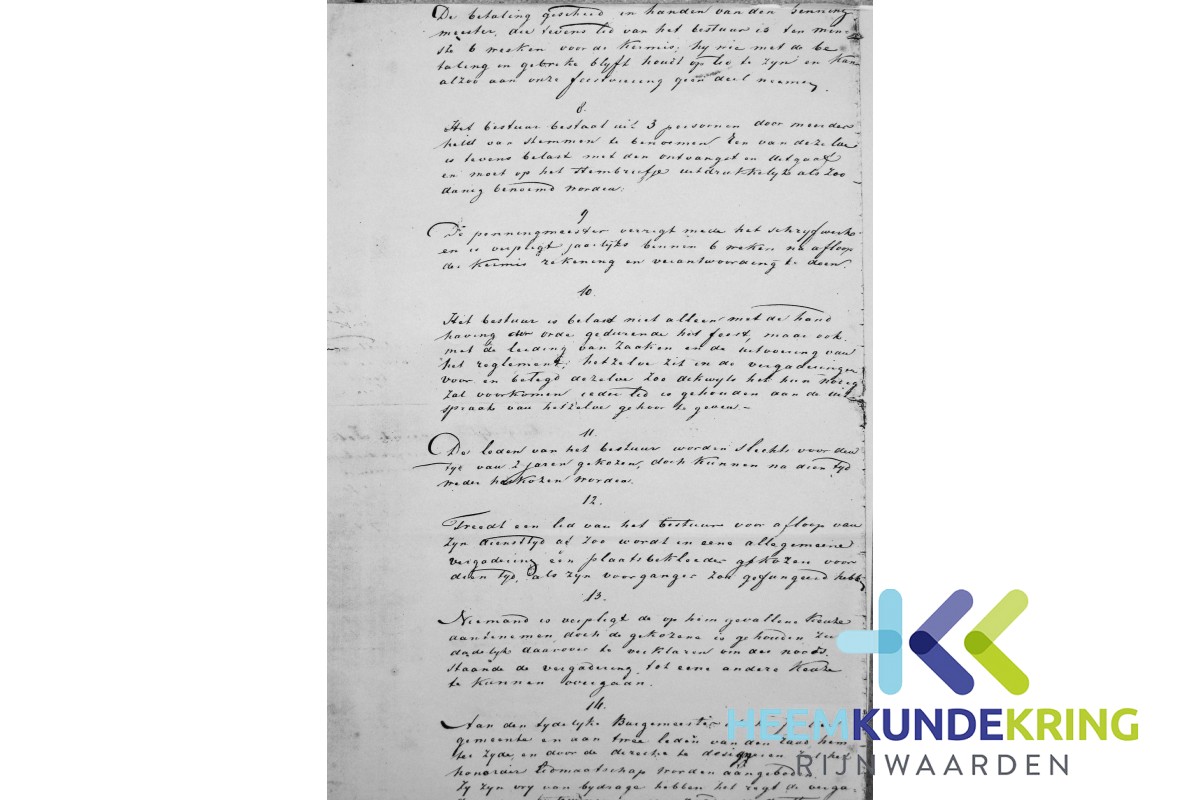 De betaling geschied in handen van den penning
meester, die tevens lid van het bestuur is ten min-
ste 6 weken voor de Kermis; hy die met de be
taling in gebreke blyft houdt op lid te zyn en kan
alzoo aan onze feestviering geen deel neemen.
8.
Het bestuur bestaat uit 3 personen door meerder-
heid van stemmen te benoemen Een van dezelve
is tevens belast met den ontvangst en uitgaaf
en moet op het stembriefje uitdrukkelyk als zoo-
danig benoemd worden.
9
De penningmeester verrigt mede het schryfwerk
en is verpligt jaarlyks binnen 6 weken na afloop
der Kermis rekening en verantwoording te doen.
10.
Het bestuur is belast niet alleen met de hand
having der orde gedurende het feest, maar ook
met de leiding van zaaken en de uitvoering van
het reglement; hetzelve zit in de vergaderingen
voor en belegd dezelve zoo dikwyls het hun noodig
zal voorkomen ieder lid is gehouden aan de uit
spraak van hetzelve gehoor te geven –
11.
De leden van het bestuur worden slechts voor den
tyd van 2 jaren gekozen, doch kunnen na dien tyd
weder herkozen worden.
12.
Treedt een lid van het bestuur voor afloop van
zyn diensttyd af zoo wordt in eene allegemeene
vergadering een plaatsbekleeder gekozen voor
dien tyd, als zyn voorganger zou gefungeerd hebben
13.
Niemand is verpligt de op hem gevallene Keuze
aantenemen, doch de gekozene is gehouden zee
dadelyk daarover te verklaren om des noods
staande de vergadering tot eene andere Keuze
te kunnen overgaan.
14.
Aan den tydelyke Burgemeester
gemeente en aan twee leden van den raad hem
ter zyde en door de directie te designeren zal het
honorair lidmaatschap worden aangeboden
Zy zyn vry van bydrage hebben het regt de verga-
HEEMKUNDEKRING
RIJNWAARDEN